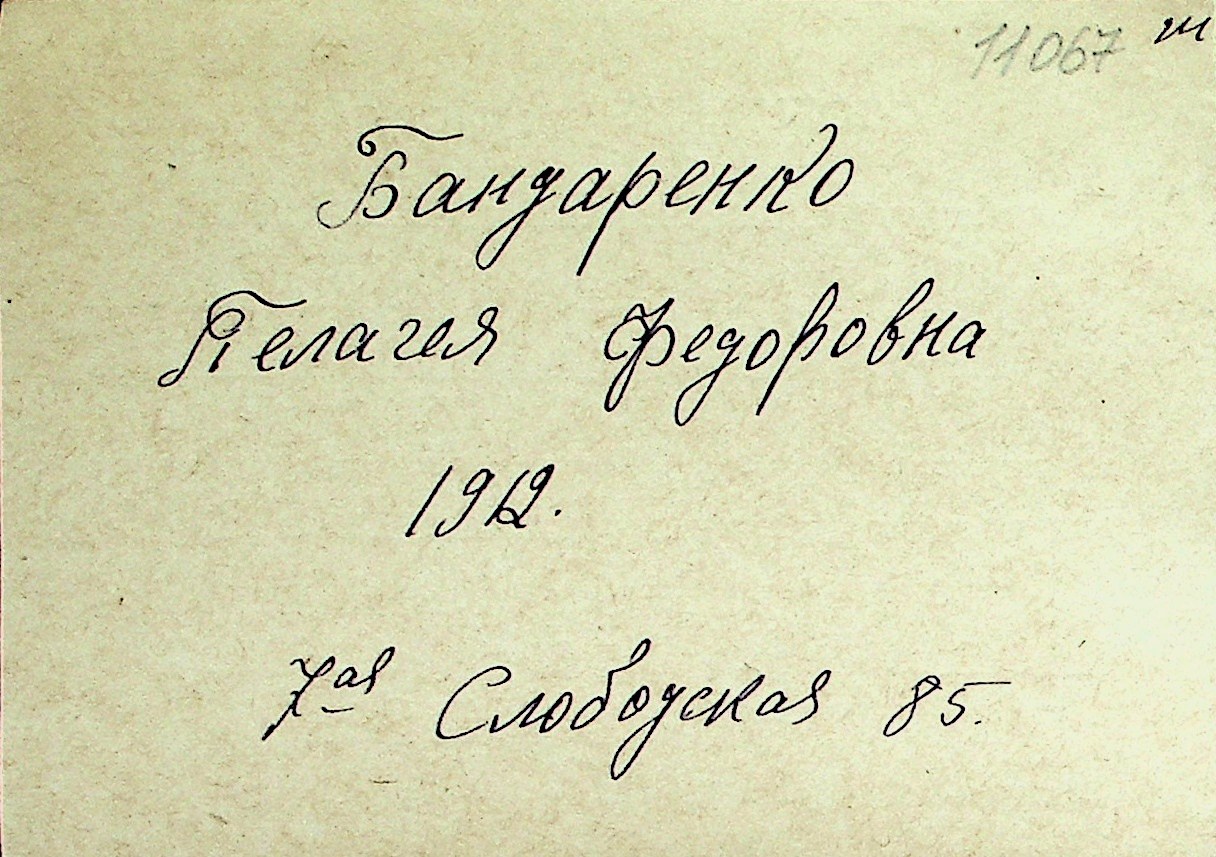 11067 ш
Бандаренко
Пелагея Федоровна
1912.
7ая Слободская 85.